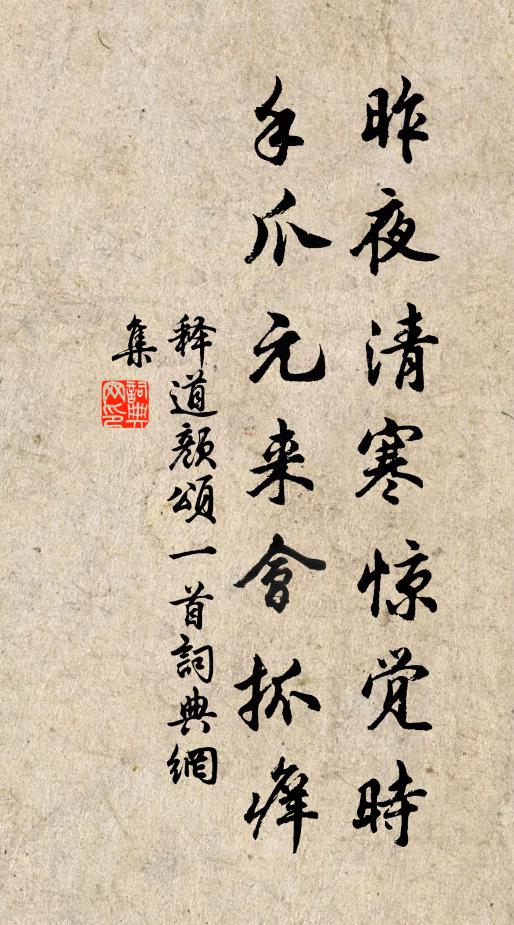 昨夜清寒惊觉時
手爪元来會抓癢
释道颜頌一首詞典網
集
詞典網印